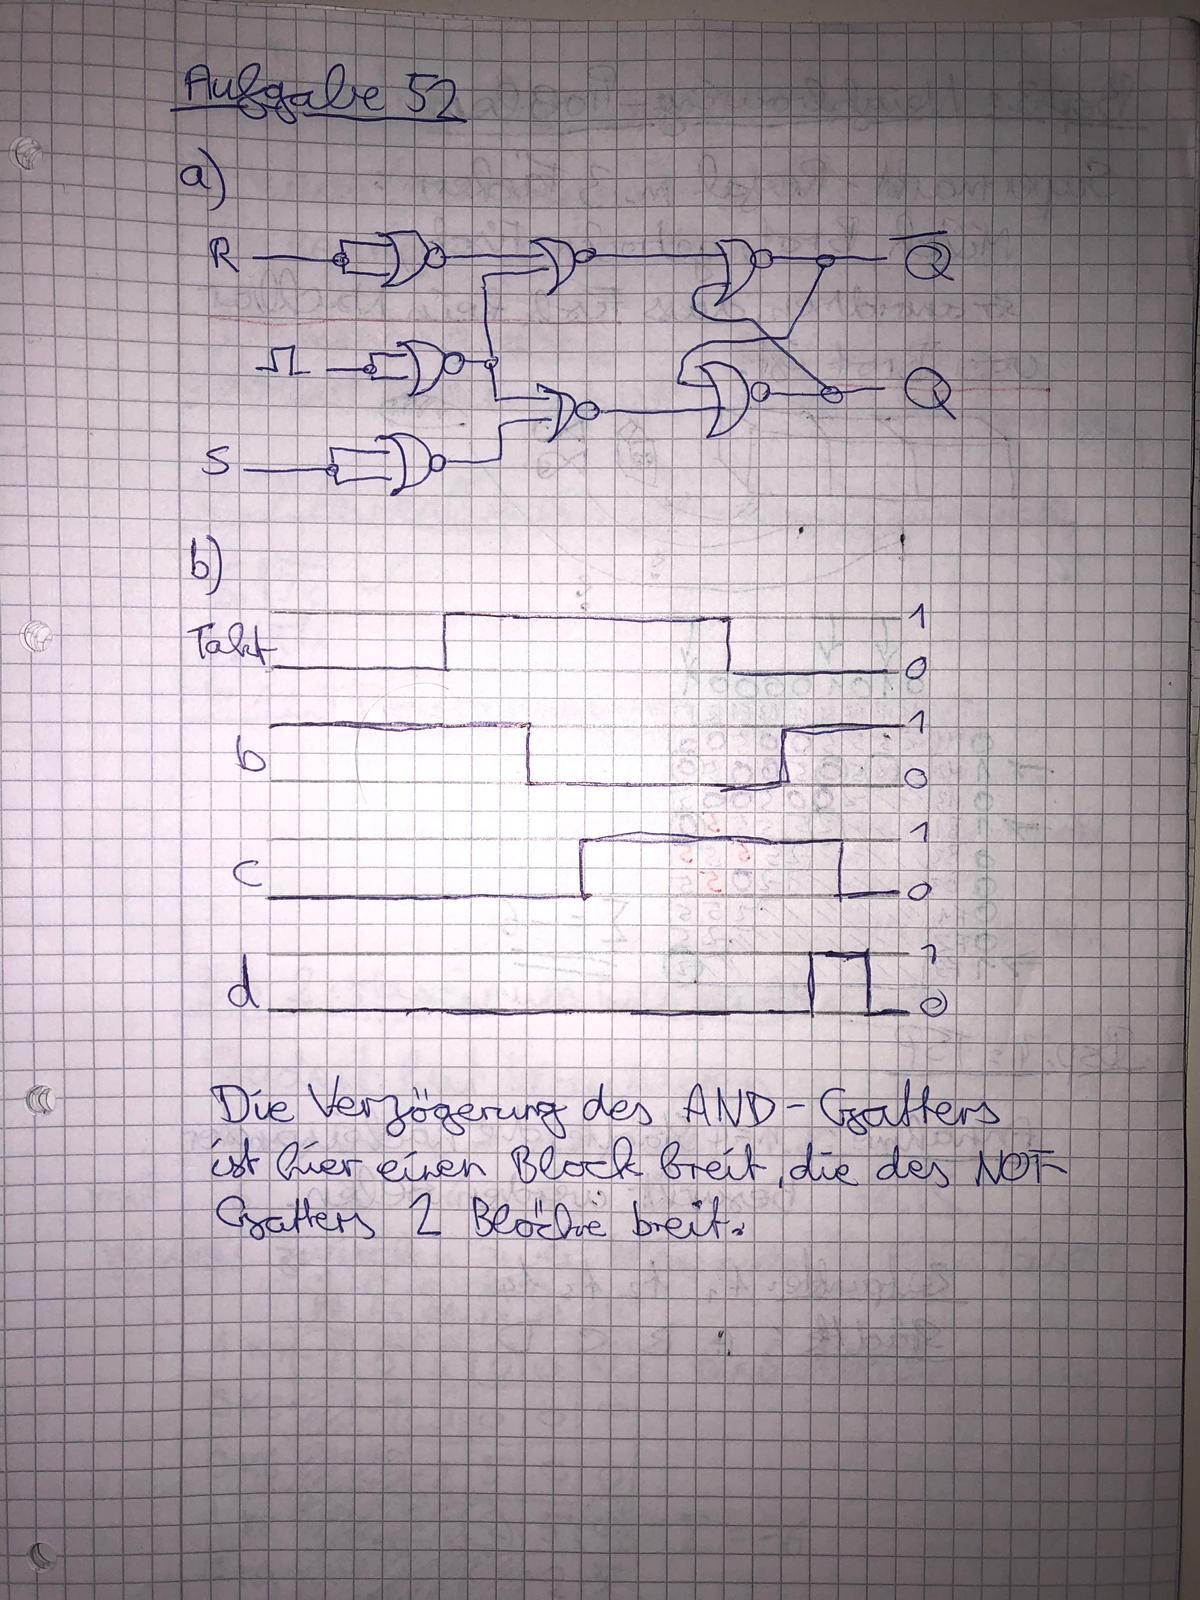 Aufgabe 52
a)
R
Q
Q
S
b)
Takt
1
0
b
1
0
c
1
0
d
1
0
Die Verzögerung des AND-Gatters
ist hier einen Block breit, die des NOT-
Gatters 2 Blöcke breit.